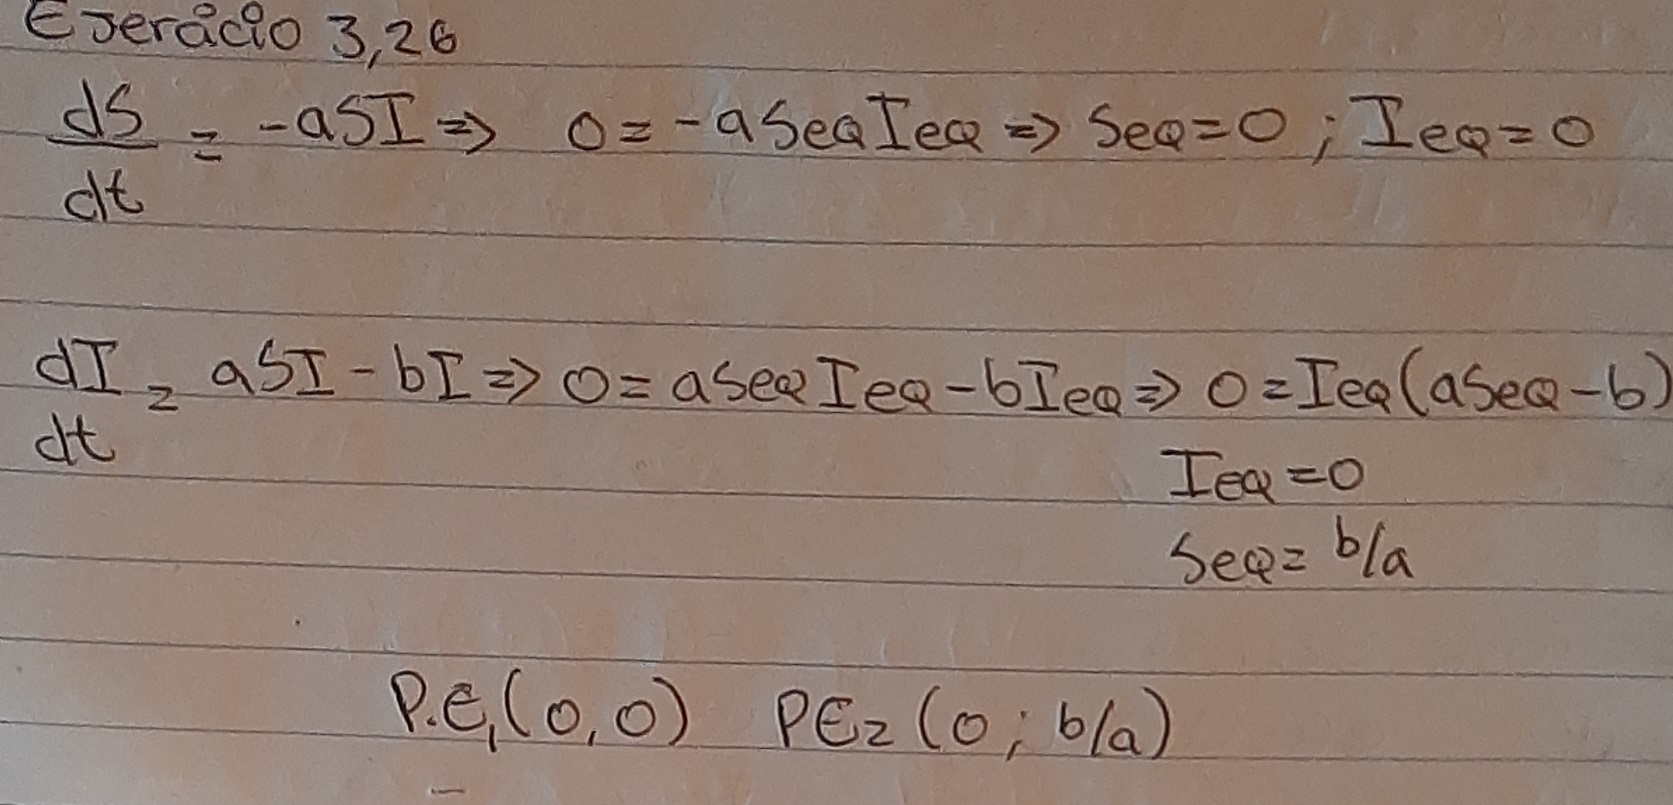 Ejercicio 3,26
dS/dt = -aSI => 0 = -aSeqIeq => Seq=0 ; Ieq=0
dI/dt = aSI - bI => 0 = aSeqIeq - bIeq => 0 = Ieq(aSeq - b)
Ieq = 0
Seq = b/a
P.E1(0,0) PE2(0; b/a)